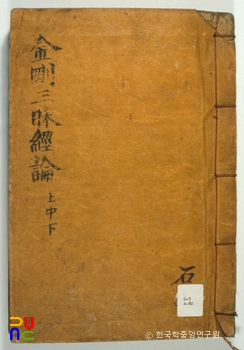 金剛三昧經論
上中下
石
ⓒ한국학중앙연구원